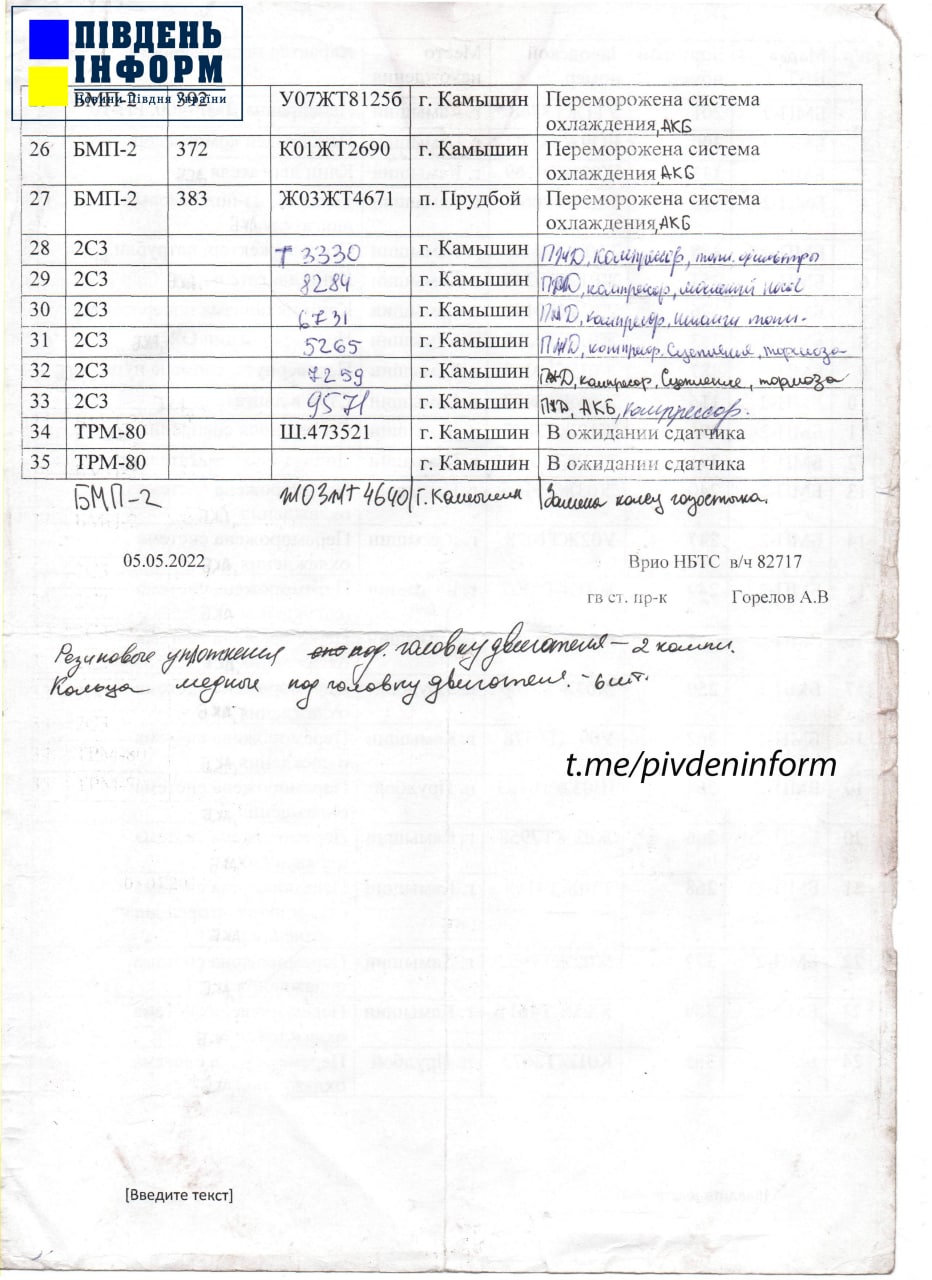 ПІВДЕНЬ
ІНФОРМ
Новини Півдня України
БМП-2 392 У07ЖТ8125б г. Камышин Переморожена система
охлаждения, АКБ
26 БМП-2 372 К01ЖТ2690 г. Камышин Переморожена система
охлаждения, АКБ
27 БМП-2 383 Ж03ЖТ4671 п. Прудбой Переморожена система
охлаждения, АКБ
28 2С3 Т 3330 г. Камышин ПЖД, компрессор, топл. фильтры
29 2С3 8284 г. Камышин ПЖД, компрессор,
30 2С3 6731 г. Камышин ПЖД, компрессор, шланги топл.
31 2С3 5265 г. Камышин ПЖД, компрессор, Сцепления, тормоза
32 2С3 7259 г. Камышин ПЖД, компрессор, Сцепление, тормоза
33 2С3 9571 г. Камышин ПЖД, АКБ, компрессор.
34 ТРМ-80 Ш.473521 г. Камышин В ожидании сдатчика
35 ТРМ-80 г. Камышин В ожидании сдатчика
БМП-2 Ж03ЖТ4640 г. Камышин Замена колец газостыка.
05.05.2022 Врио НБТС в/ч 82717
гв ст. пр-к Горелов А.В
Резиновые уплотнения под головку двигателя – 2 компл.
Кольца медные под головку двигателя – 6 шт.
t.me/pivdeninform
[Введите текст]